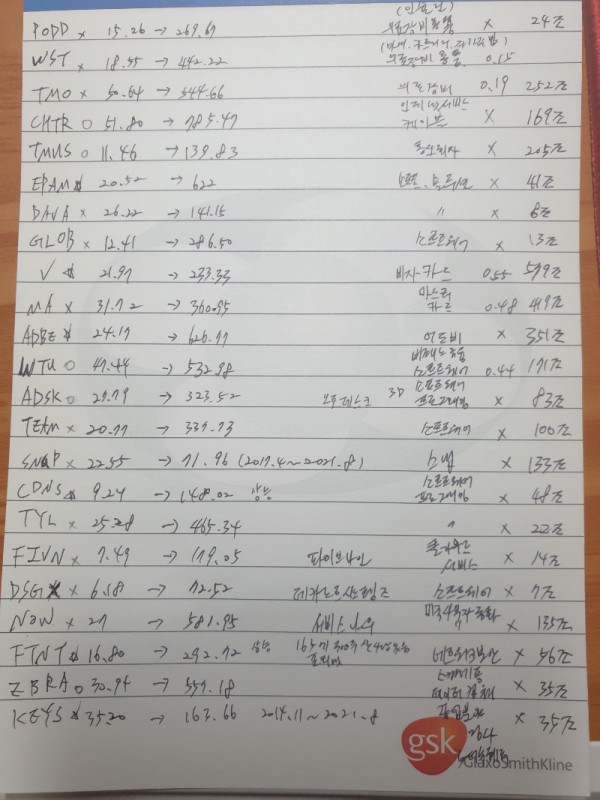 (인슐린)
PODD × 15.26 → 269.67 의료장비용품 × 24조
WST × 18.55 → 442.22 의료장비 용품 0.15
TMO × 50.64 → 544.66 의료장비 0.19 252조
CHTR ○ 51.80 → 785.47 인터넷서비스 케이블 × 169조
TMUS ○ 11.46 → 139.83 통신회사 × 205조
EPAM 20.52 → 622 소프트, 솔루션 × 41조
DAVA × 26.22 → 141.15 〃 × 8조
GLOB × 12.41 → 286.50 소프트웨어 × 13조
V 21.97 → 233.33 비자-카드 0.55 599조
MA × 31.72 → 360.95 마스터 카드 0.48 419조
ADBE 24.17 → 626.77 어도비 × 351조
○ 47.44 → 532.98 소프트웨어 0.44 171조
ADSK ○ 29.79 → 323.52 오토데스크 3D 소프트웨어 프로그래밍 × 83조
TEAM × 20.77 → 337.73 소프트웨어 × 100조
SNAP × 22.55 → 71.96 (2017.4~2021.8) 스냅 × 133조
CDNS 9.24 → 148.02 상승 소프트웨어 프로그래밍 × 48조
TYL × 25.28 → 465.34 〃 × 22조
FIVN × 7.49 → 179.05 파이브나인 클라우드 서비스 × 14조
DSG × 6.18 → 72.52 데카르트시스템즈 소프트웨어 × 7조
NOW × 27 → 581.95 서비스나우 × 135조
FTNT 16.80 → 292.72 상승 네트워크보안 × 56조
ZBRA ○ 30.94 → 557.18 데이터 캡쳐 × 35조
KEYS 35.20 → 163.66 2014.11~2021.8 × 35조
gsk
GlaxoSmithKline